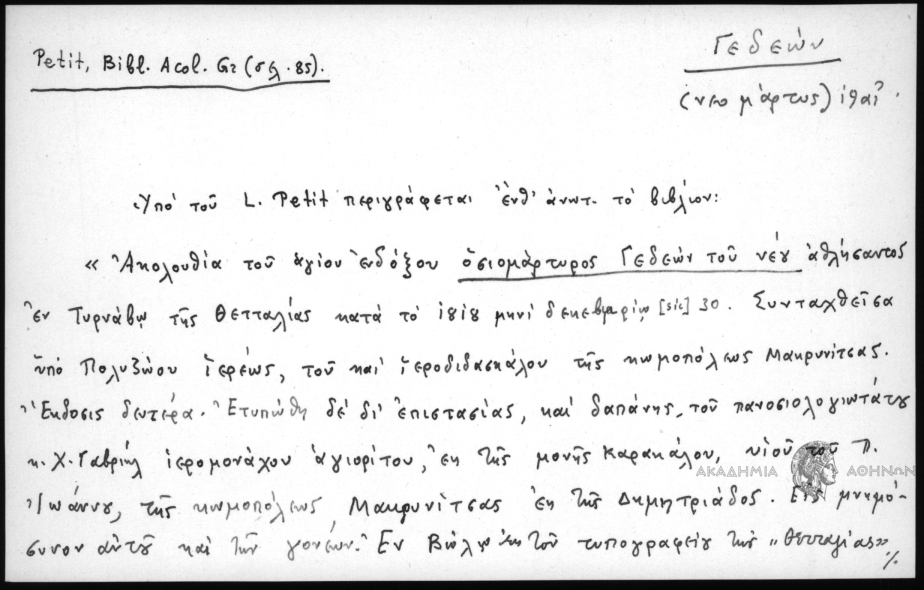 Petit, Bibl. Acol. Gr (σελ. 85).
Γεδεών
(νεομάρτυς) ιθ' αἰ.
Ὑπό τοῦ L. Petit περιγράφεται ἐνθ' ἀνωτ. τό βιβλίον:
« Ἀκολουθία τοῦ ἁγίου ἐνδόξου ὁσιομάρτυρος Γεδεών τοῦ νέου ἀθλήσαντος
ἐν Τυρνάβῳ τῆς Θετταλίας κατά τό 1818 μηνί δεκεμβρίῳ [sic] 30. Συνταχθεῖσα
ὑπό Πολυζώου ἱερέως, τοῦ καί ἱεροδιδασκάλου τῆς κωμοπόλεως Μακρυνίτσας.
Ἔκδοσις δευτέρα. Ἐτυπώθη δέ δι' ἐπιστασίας, καί δαπάνης, τοῦ πανοσιολογιωτάτου
κ. Χ. Γαβριήλ ἱερομονάχου ἁγιορίτου, ἐκ τῆς μονῆς Καρακάλου, υἱοῦ τοῦ Π.
Ἰωάννου, τῆς κωμοπόλεως Μακρυνίτσας ἐκ τῆς Δημητριάδος. Εἰς μνημό-
συνον αὐτοῦ καί τῶν γονέων. Ἐν Βώλῳ ἐκ τοῦ τυπογραφείου τῆς „Θετταλίας"
./.
ΑΚΑΔΗΜΙΑ ΑΘΗΝΩΝ